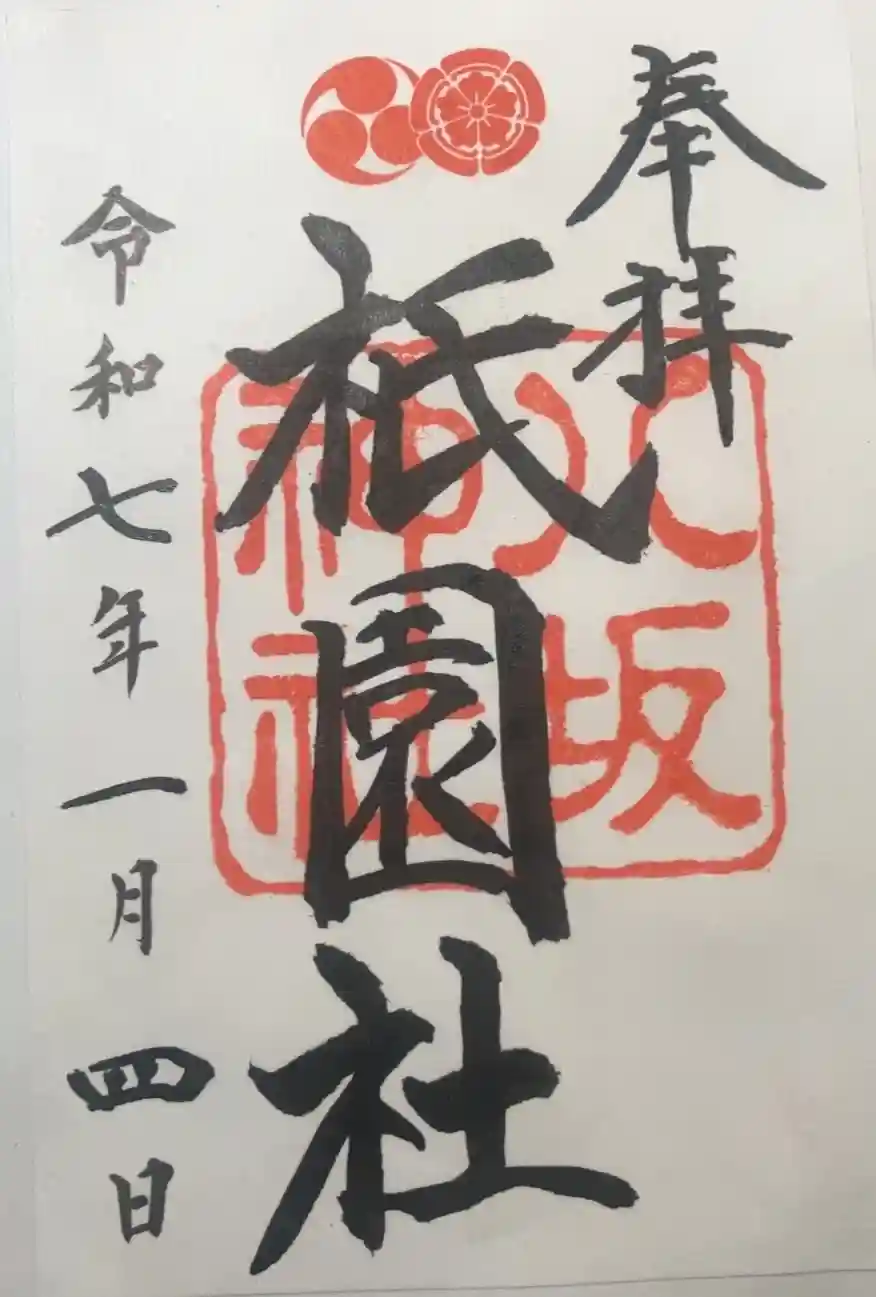 奉拝
八坂
神社
祇園社
令和七年一月四日